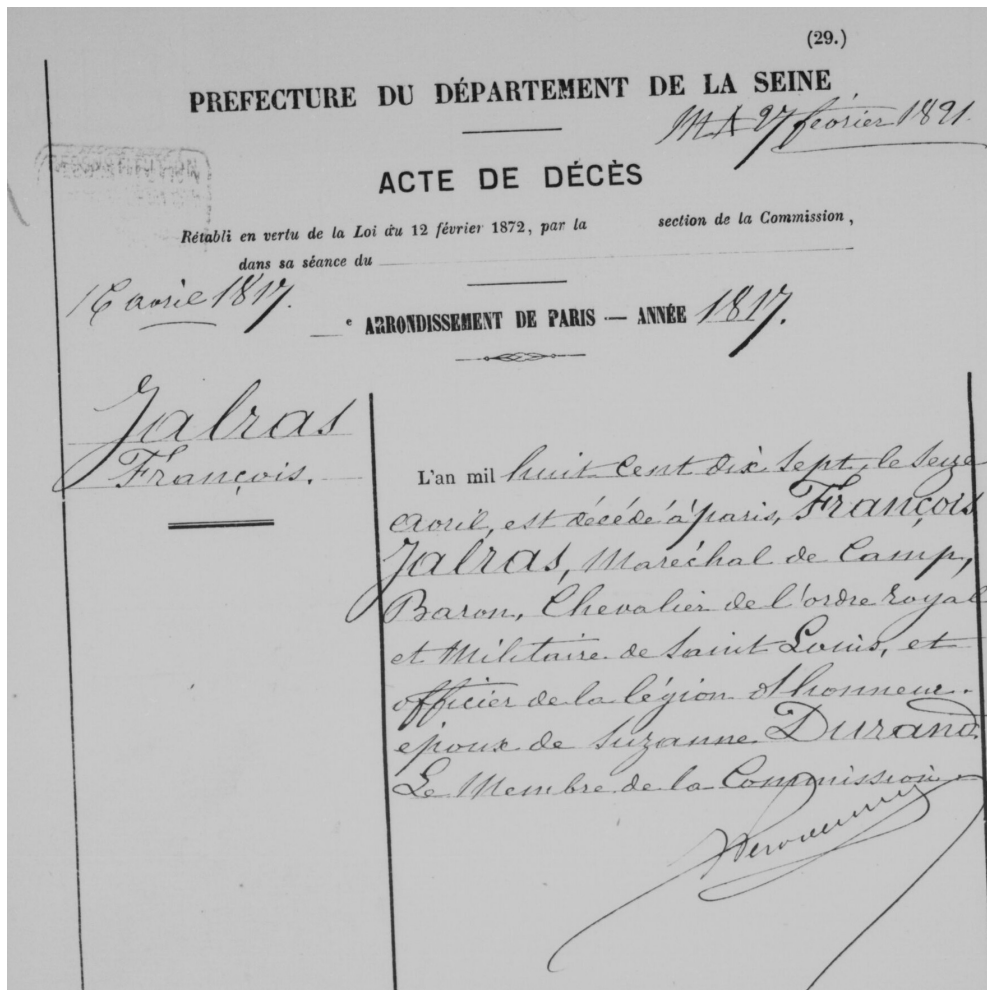 (29.)
PREFECTURE DU DÉPARTEMENT DE LA SEINE
27 février 1821.
ACTE DE DÉCÈS
Rétabli en vertu de la Loi du 12 février 1872, par la section de la Commission,
dans sa séance du
16 avril 1817.
e ARRONDISSEMENT DE PARIS — ANNÉE 1817.
Jalras
François.
L'an mil huit cent dix sept, le seize
avril, est décédé à paris, François
Jalras, Maréchal de Camp,
Baron, Chevalier de l'ordre royal
et Militaire de Saint Louis, et
officier de la légion d'honneur.
époux de Suzanne Durand.
Le Membre de la Commission